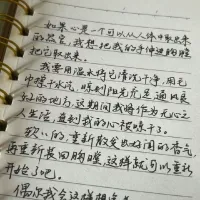 如果心是一个可以从人体中取出来
的器官,我想把我的手伸进胸膛
把它取出来。
我要用温水将它清洗干净,用毛
巾擦干水汽,晾到阳光充足通风良
好的地方,这期间我将作为无心之
人生活,直到我的心被晾干了。
软心的,重新散发出好闻的香气
再重新装回胸膛,这样就可以重新
开始了吧。
偶尔我会这样想